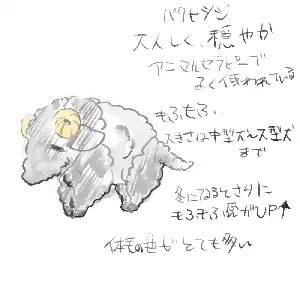 バクヒツジ
大人しく、穏やか
アニマルセラピーで
よく使われている
もふもふ、
大きさは中型犬〜大型犬
まで
冬になるとさらに
もふもふ度がUP↑
体毛の色がとても多い